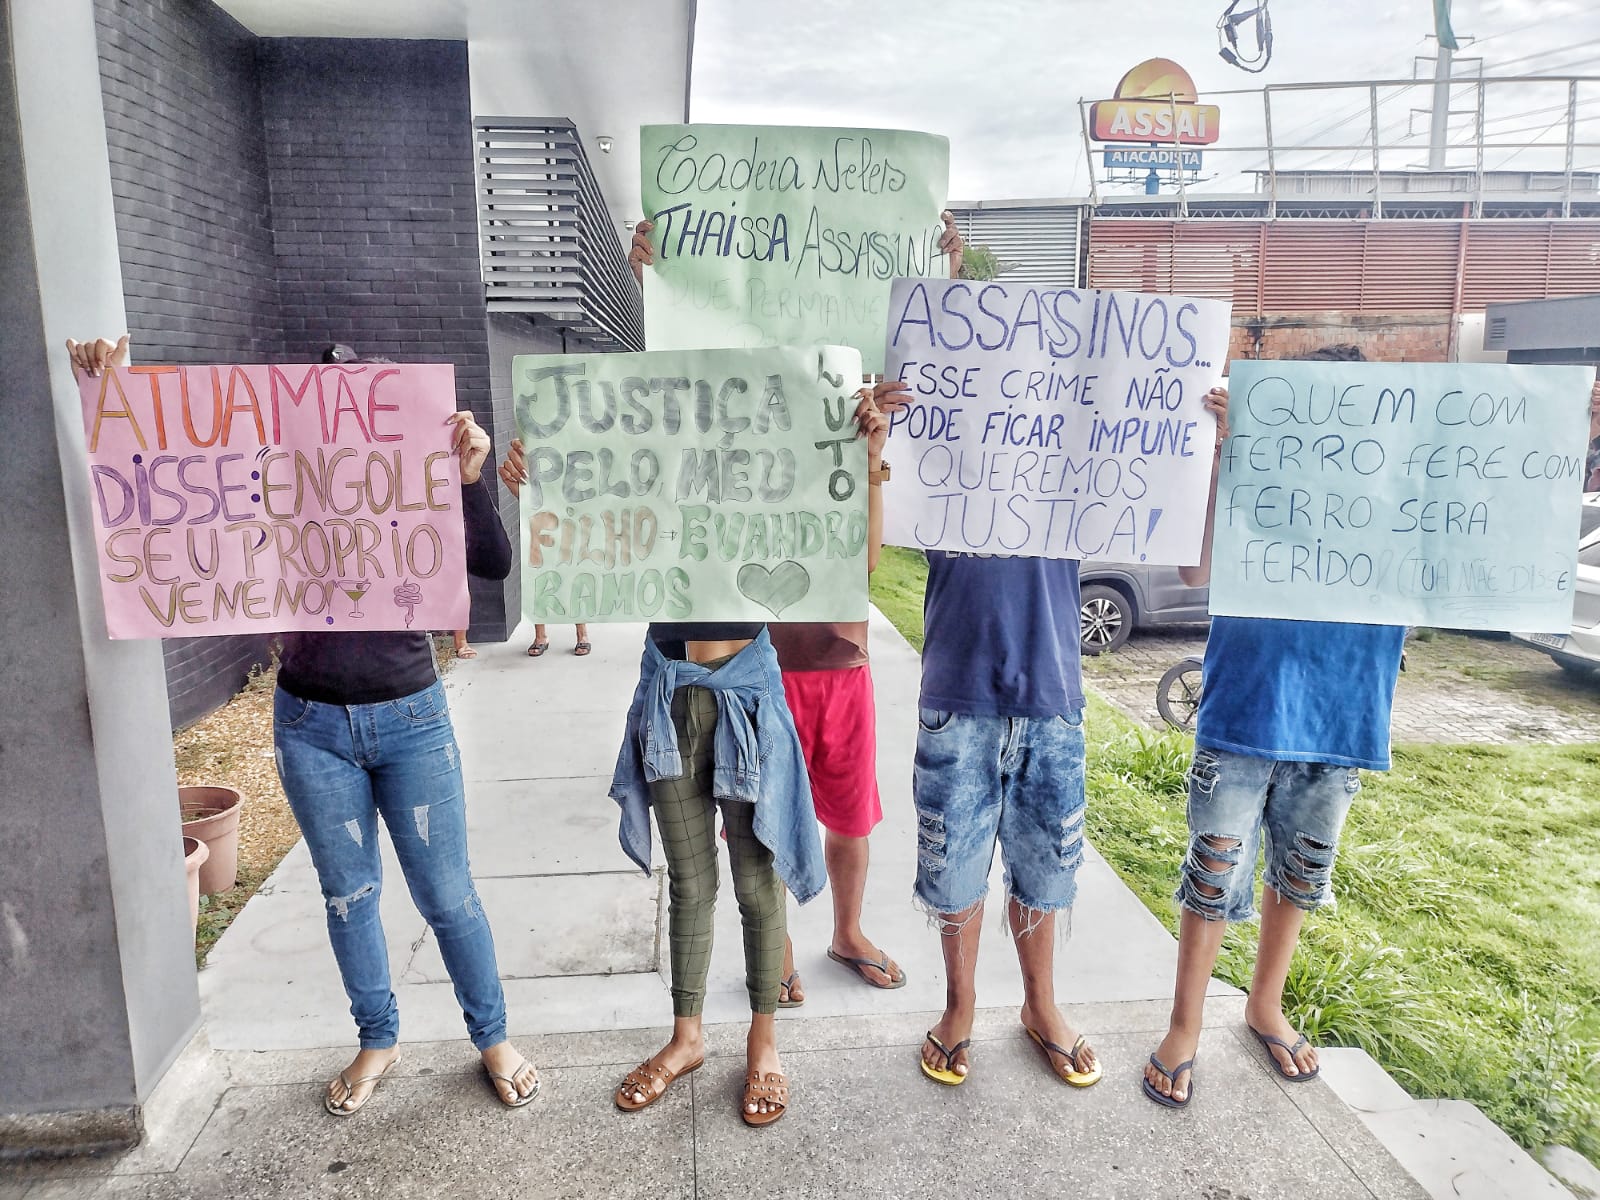 ASSAÍ
ATACADISTA
Cadeia Neles
THAiSSA ASSASSINA
QUE PERMANEÇ
A TUA MÃE
DISSE: ENGOLE
SEU PROPRIO
VENENO!
JUSTiÇA
PELO MEU
FiLHO - EVANDRO
RAMOS
LUTO
ASSASSINOS...
ESSE CRIME NÃO
PODE FICAR iMPUNE
QUEREMOS
JUSTIÇA!
QUEM COM
FERRO FERE COM
FERRO SERÁ
FERIDO! (TUA MÃE DISSE)